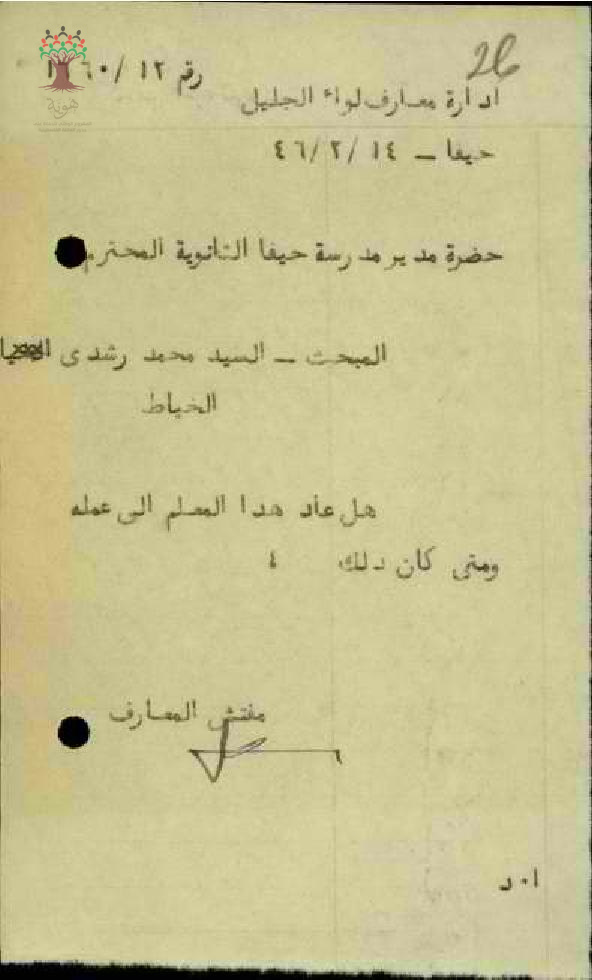 26
رقم ١٢ /٦٠
ادارة معارف لواء الجليل
حيفا - ١٤ /٢ /٤٦
حضرة مدير مدرسة حيفا الثانوية المحترم
المبحث - السيد محمد رشدى
الخياط
هل عاد هدا المعلم الى عمله
ومتى كان دلك ؟
مفتش المعارف
ا٠ د
هوية